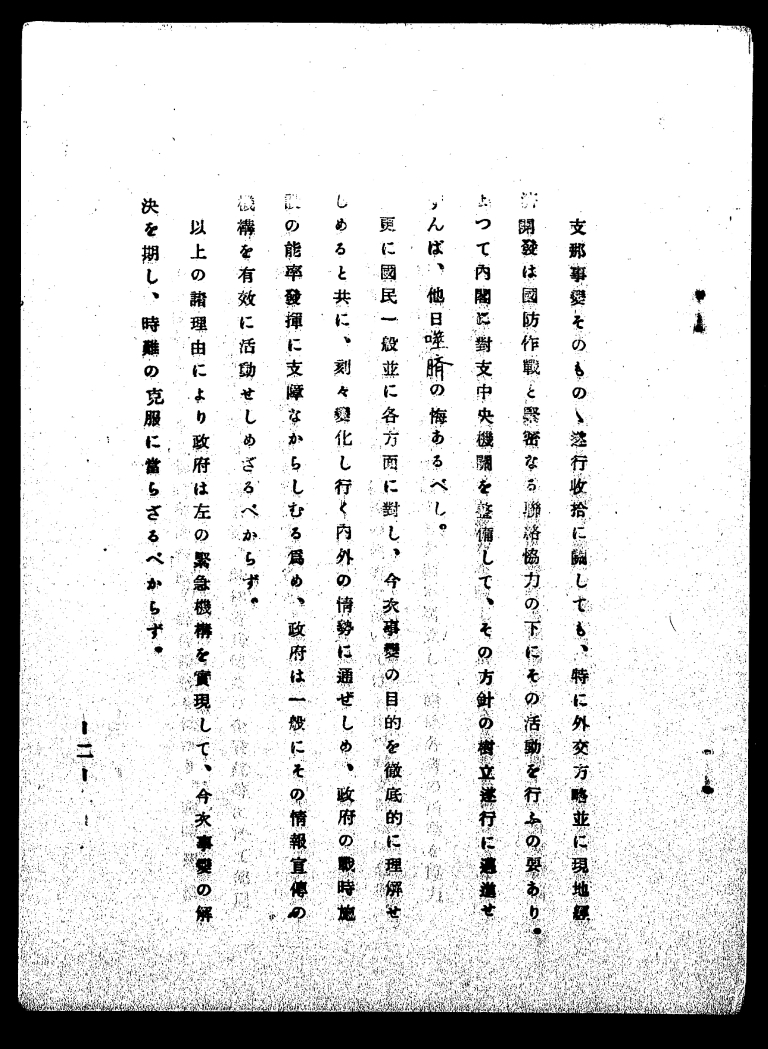 支那事變そのものゝ遂行收拾に關しても、特に外交方略並に現地經
濟開發は國防作戰と緊密なる聯絡協力の下にその活動を行ふの要あり。
よつて內閣に對支中央機關を整備して、その方針の樹立遂行に邁進せ
ずんば、他日噬臍の悔あるべし。
更に國民一般並に各方面に對し、今次事變の目的を徹底的に理解せ
しめると共に、刻々變化し行く內外の情勢に通ぜしめ、政府の戰時施
設の能率發揮に支障なからしむる爲め、政府は一般にその情報宣傳の
機構を有效に活動せしめざるべからず。
以上の諸理由により政府は左の緊急機構を實現して、今次事變の解
決を期し、時難の克服に當らざるべからず。
－二－